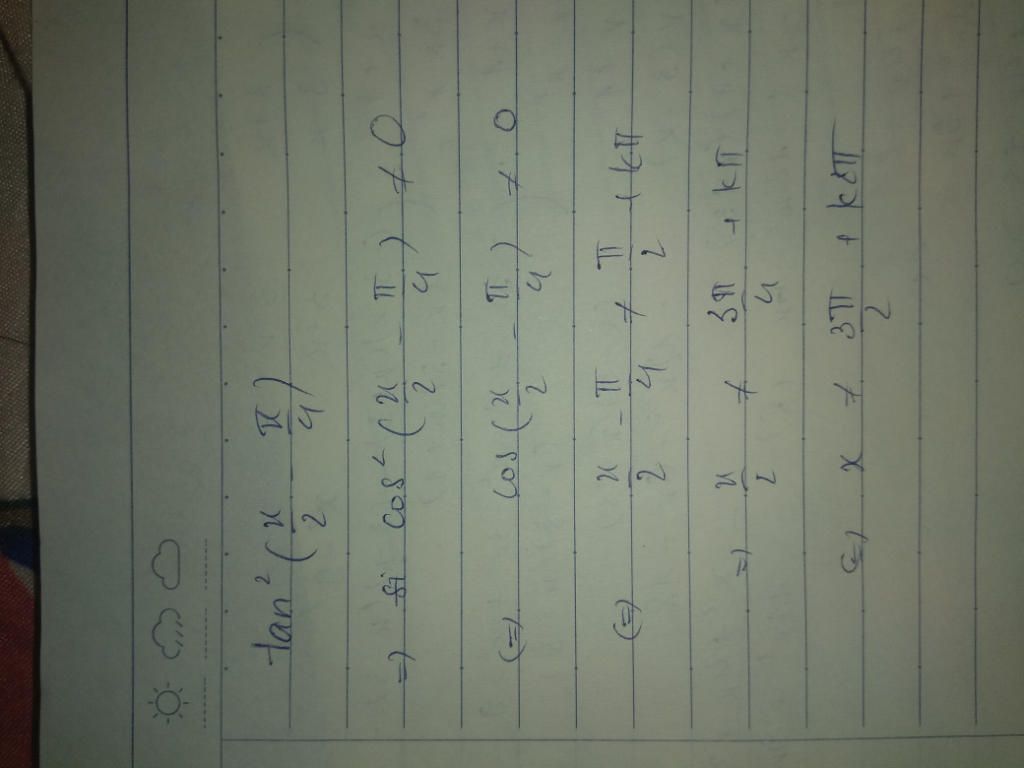 tan² (x/2 - π/4)
=> si cos² (x/2 - π/4) ≠ 0
(=) cos (x/2 - π/4) ≠ 0
(=) x/2 - π/4 ≠ π/2 + kπ
=) x/2 ≠ 3π/4 + kπ
(=) x ≠ 3π/2 + k2π